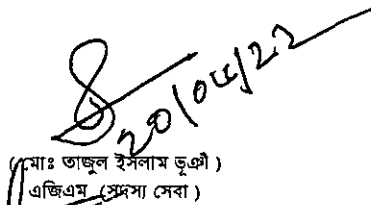 20/04/22
(মোঃ তাজুল ইসলাম ভূঞাঁ)
এজিএম (সদস্য সেবা)